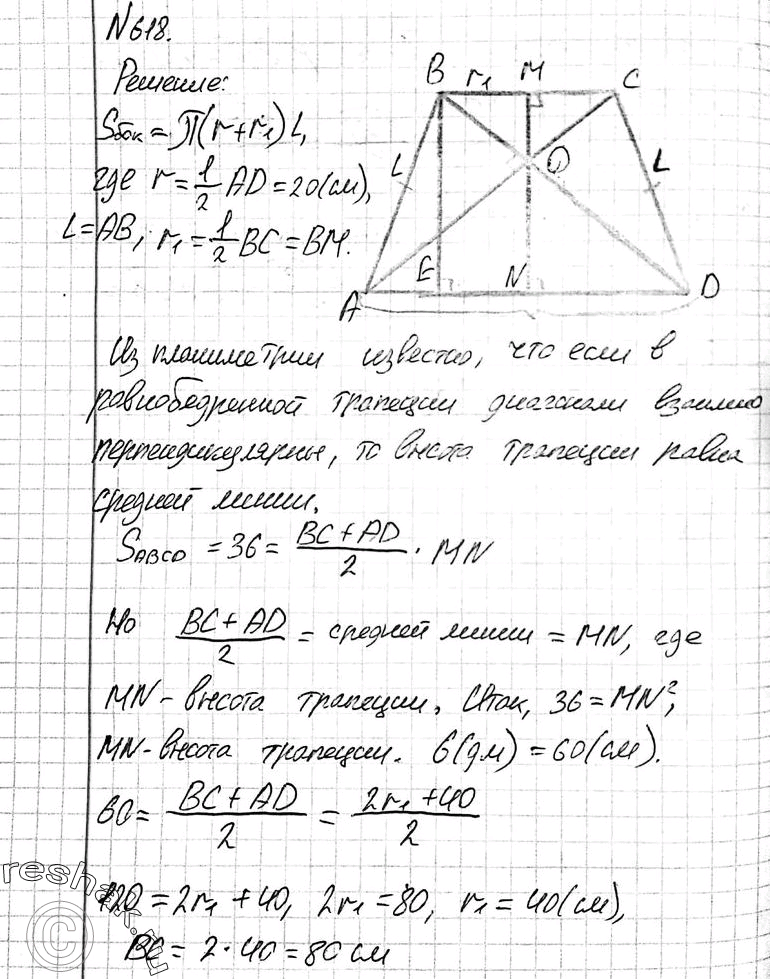 N618.
Решение:
Sбок = π(r+r₁)L,
где r = 1/2 AD = 20(см),
L = AB, r₁ = 1/2 BC = BM.
B r₁ M C
L O L
A E N D
Из планиметрии известно, что если в
равнобедренной трапеции диагонали взаимно
перпендикулярны, то высота трапеции равна
средней линии.
S_ABCD = 36 = (BC + AD)/2 · MN
Но (BC + AD)/2 = средней линии = MN, где
MN - высота трапеции. Итак, 36 = MN²,
MN - высота трапеции. 6(дм) = 60(см).
60 = (BC + AD)/2 = (2r₁ + 40)/2
120 = 2r₁ + 40, 2r₁ = 80, r₁ = 40(см),
BC = 2·40 = 80 см
reshak.ru
©